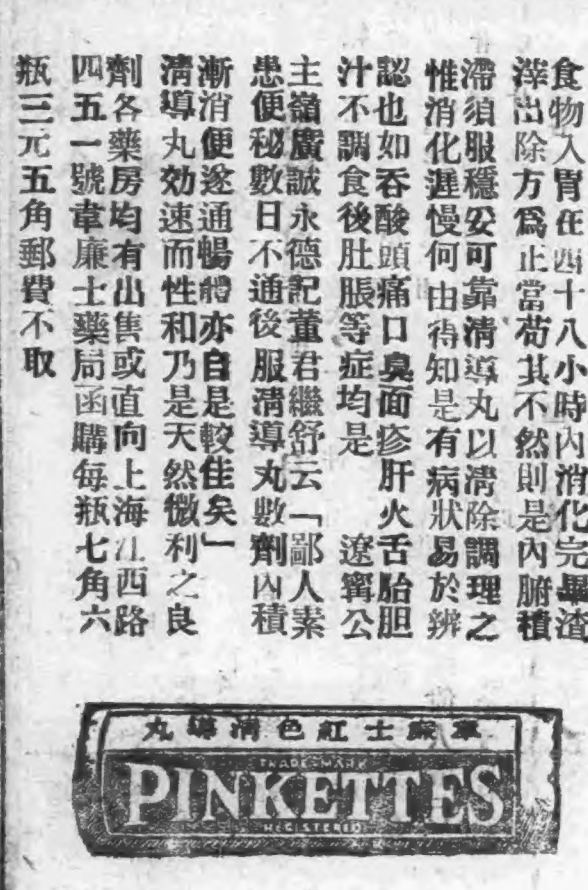 食物入胃在四十八小時內消化完畢渣
滓出除方爲止當苟其不然則是內腑積
滯須服穩妥可靠清導丸以清除調理之
惟消化遲慢何由得知是有病狀易於辨
認也如吞酸頭痛口臭面疹肝火舌胎胆
汁不調食後肚脹等症均是 遼寗公
主嶺廣誠永德記董君繼舒云「鄙人素
患便秘數日不通後服清導丸數劑內積
漸消便遂通暢體亦自是較佳矣」
清導丸効速而性和乃是天然微利之良
劑各藥房均有出售或直向上海江西路
四五一號韋廉士藥局函購每瓶七角六
瓶三元五角郵費不取
韋廉士紅色清導丸
TRADE-MARK
PINKETTES
REGISTERED